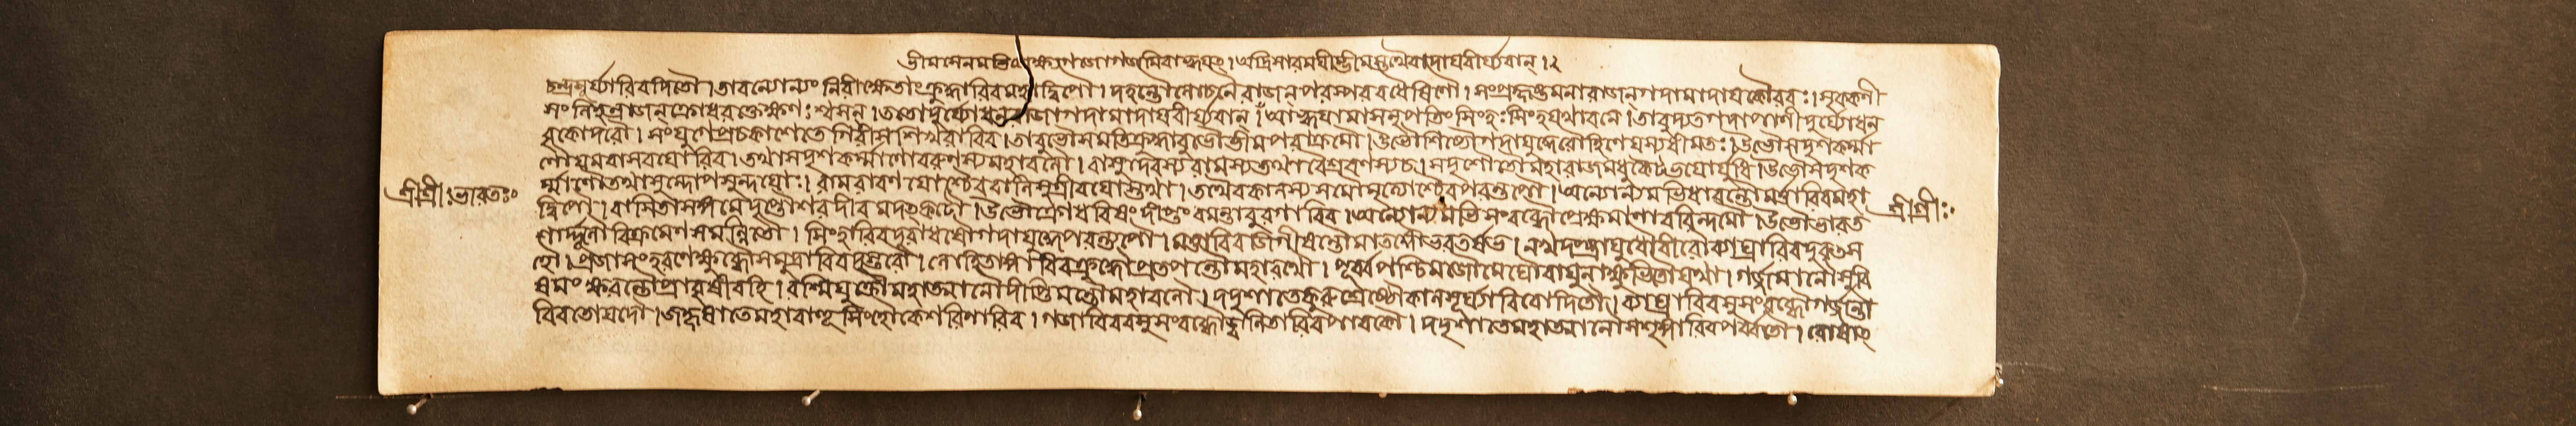 ভীমসেনমভিপ্রেক্ষ্যগজোগজমিবাহ্বয়ৎ। অদ্রিসারময়ীংভীমস্তথৈবাদায়বীর্য্যবান্।২
চন্দ্রসূর্য্যাবিবদিতৌ। তাবন্যোন্যং নিরীক্ষেতাংক্রুদ্ধাবিবমহাদ্বিপৌ। দহন্তৌলোচনৈরাজন্পরস্পরবধৈষিণৌ। সংপ্রহৃষ্টমনারাজন্গদামাদায়কৌরবঃ। সৃক্কণী
সংলিহন্রাজন্ক্রোধরক্তেক্ষণঃশ্বসন্। ততোদুর্য্যোধনোরাজাগদামাদায়বীর্য্যবান্। আহ্বয়ামাসনৃপতিং সিংহঃসিংহংযথাবনে। তাবুদ্যতগদাপাণীদুর্য্যোধন
বৃকোদরৌ। সংযুগেপ্রচকাশেতে গিরীসশিখরাবিব। তাবুভৌসমতিক্রুদ্ধাবুভৌভীমপরাক্রমৌ। উভৌশিষ্যৌগদাযুদ্ধেরৌহিণেয়স্যধীমতঃ। উভৌসদৃশকর্ম্মা
ণৌযমবাসবয়োরিব। তথাসদৃশকর্ম্মাণৌবরুণস্যমহাবলৌ। বাসুদেবস্যরামস্যতথাবৈশ্রবণস্যচ। সদৃশৌতৌমহারাজমধুকৈটভয়োর্যুধি। উভৌসদৃশক
শ্রীশ্রীঃভারতঃ৹ র্ম্মাণৌতথাসুন্দোপসুন্দয়োঃ। রামরাবণয়োশ্চৈববালিসুগ্রীবয়োস্তথা। তথৈবকালস্যসমৌমৃত্যোশ্চৈবপরন্তপৌ। অন্যোন্যমভিধাবন্তৌমত্তাবিবমহা
দ্বিপৌ। বাসিতাসঙ্গমেদৃপ্তৌশরদীবমদোৎকটৌ। উভৌক্রোধবিষংদীপ্তংবমন্তাবুরগাবিব। অন্যোন্যমভিসংরব্ধৌপ্রেক্ষমাণাবরিন্দমৌ। উভৌভারত শ্রীশ্রীঃ৹
শার্দ্দূলৌবিক্রমেণসমন্বিতৌ। সিংহাবিবদুরাধর্ষৌগদাযুদ্ধেপরন্তপৌ। মত্তাবিবজিগীষন্তৌমাতঙ্গৌভরতর্ষভ। নখদংষ্ট্রায়ুধৌবীরৌব্যাঘ্রাবিবদুরুৎস
হৌ। প্রজাসংহরণেক্ষুব্ধৌসমুদ্রাবিবদুস্তরৌ। লোহিতাঙ্গাবিবক্রুদ্ধৌপ্রতপন্তৌমহারথৌ। পূর্ব্বপশ্চিমজৌমেঘৌবায়ুনাক্ষুভিতৌযথা। গর্জ্জমানৌসুবি
ষমংক্ষরন্তৌপ্রাবৃষীবহি। রশ্মিযুক্তৌমহাত্মানৌদীপ্তিমন্তৌমহাবলৌ। দদৃশাতেকুরুশ্রেষ্ঠৌকালসূর্য্যাবিবোদিতৌ। ব্যাঘ্রাবিবসুসংরব্ধৌগর্জ্জন্তা
বিবতোয়দৌ। জহৃষাতেমহাবাহূসিংহৌকেশরিণাবিব। গজাবিবসুসংরব্ধৌজ্বলিতাবিবপাবকৌ। দদৃশাতেমহাত্মানৌসশৃঙ্গাবিবপর্ব্বতৌ। রোষাৎ